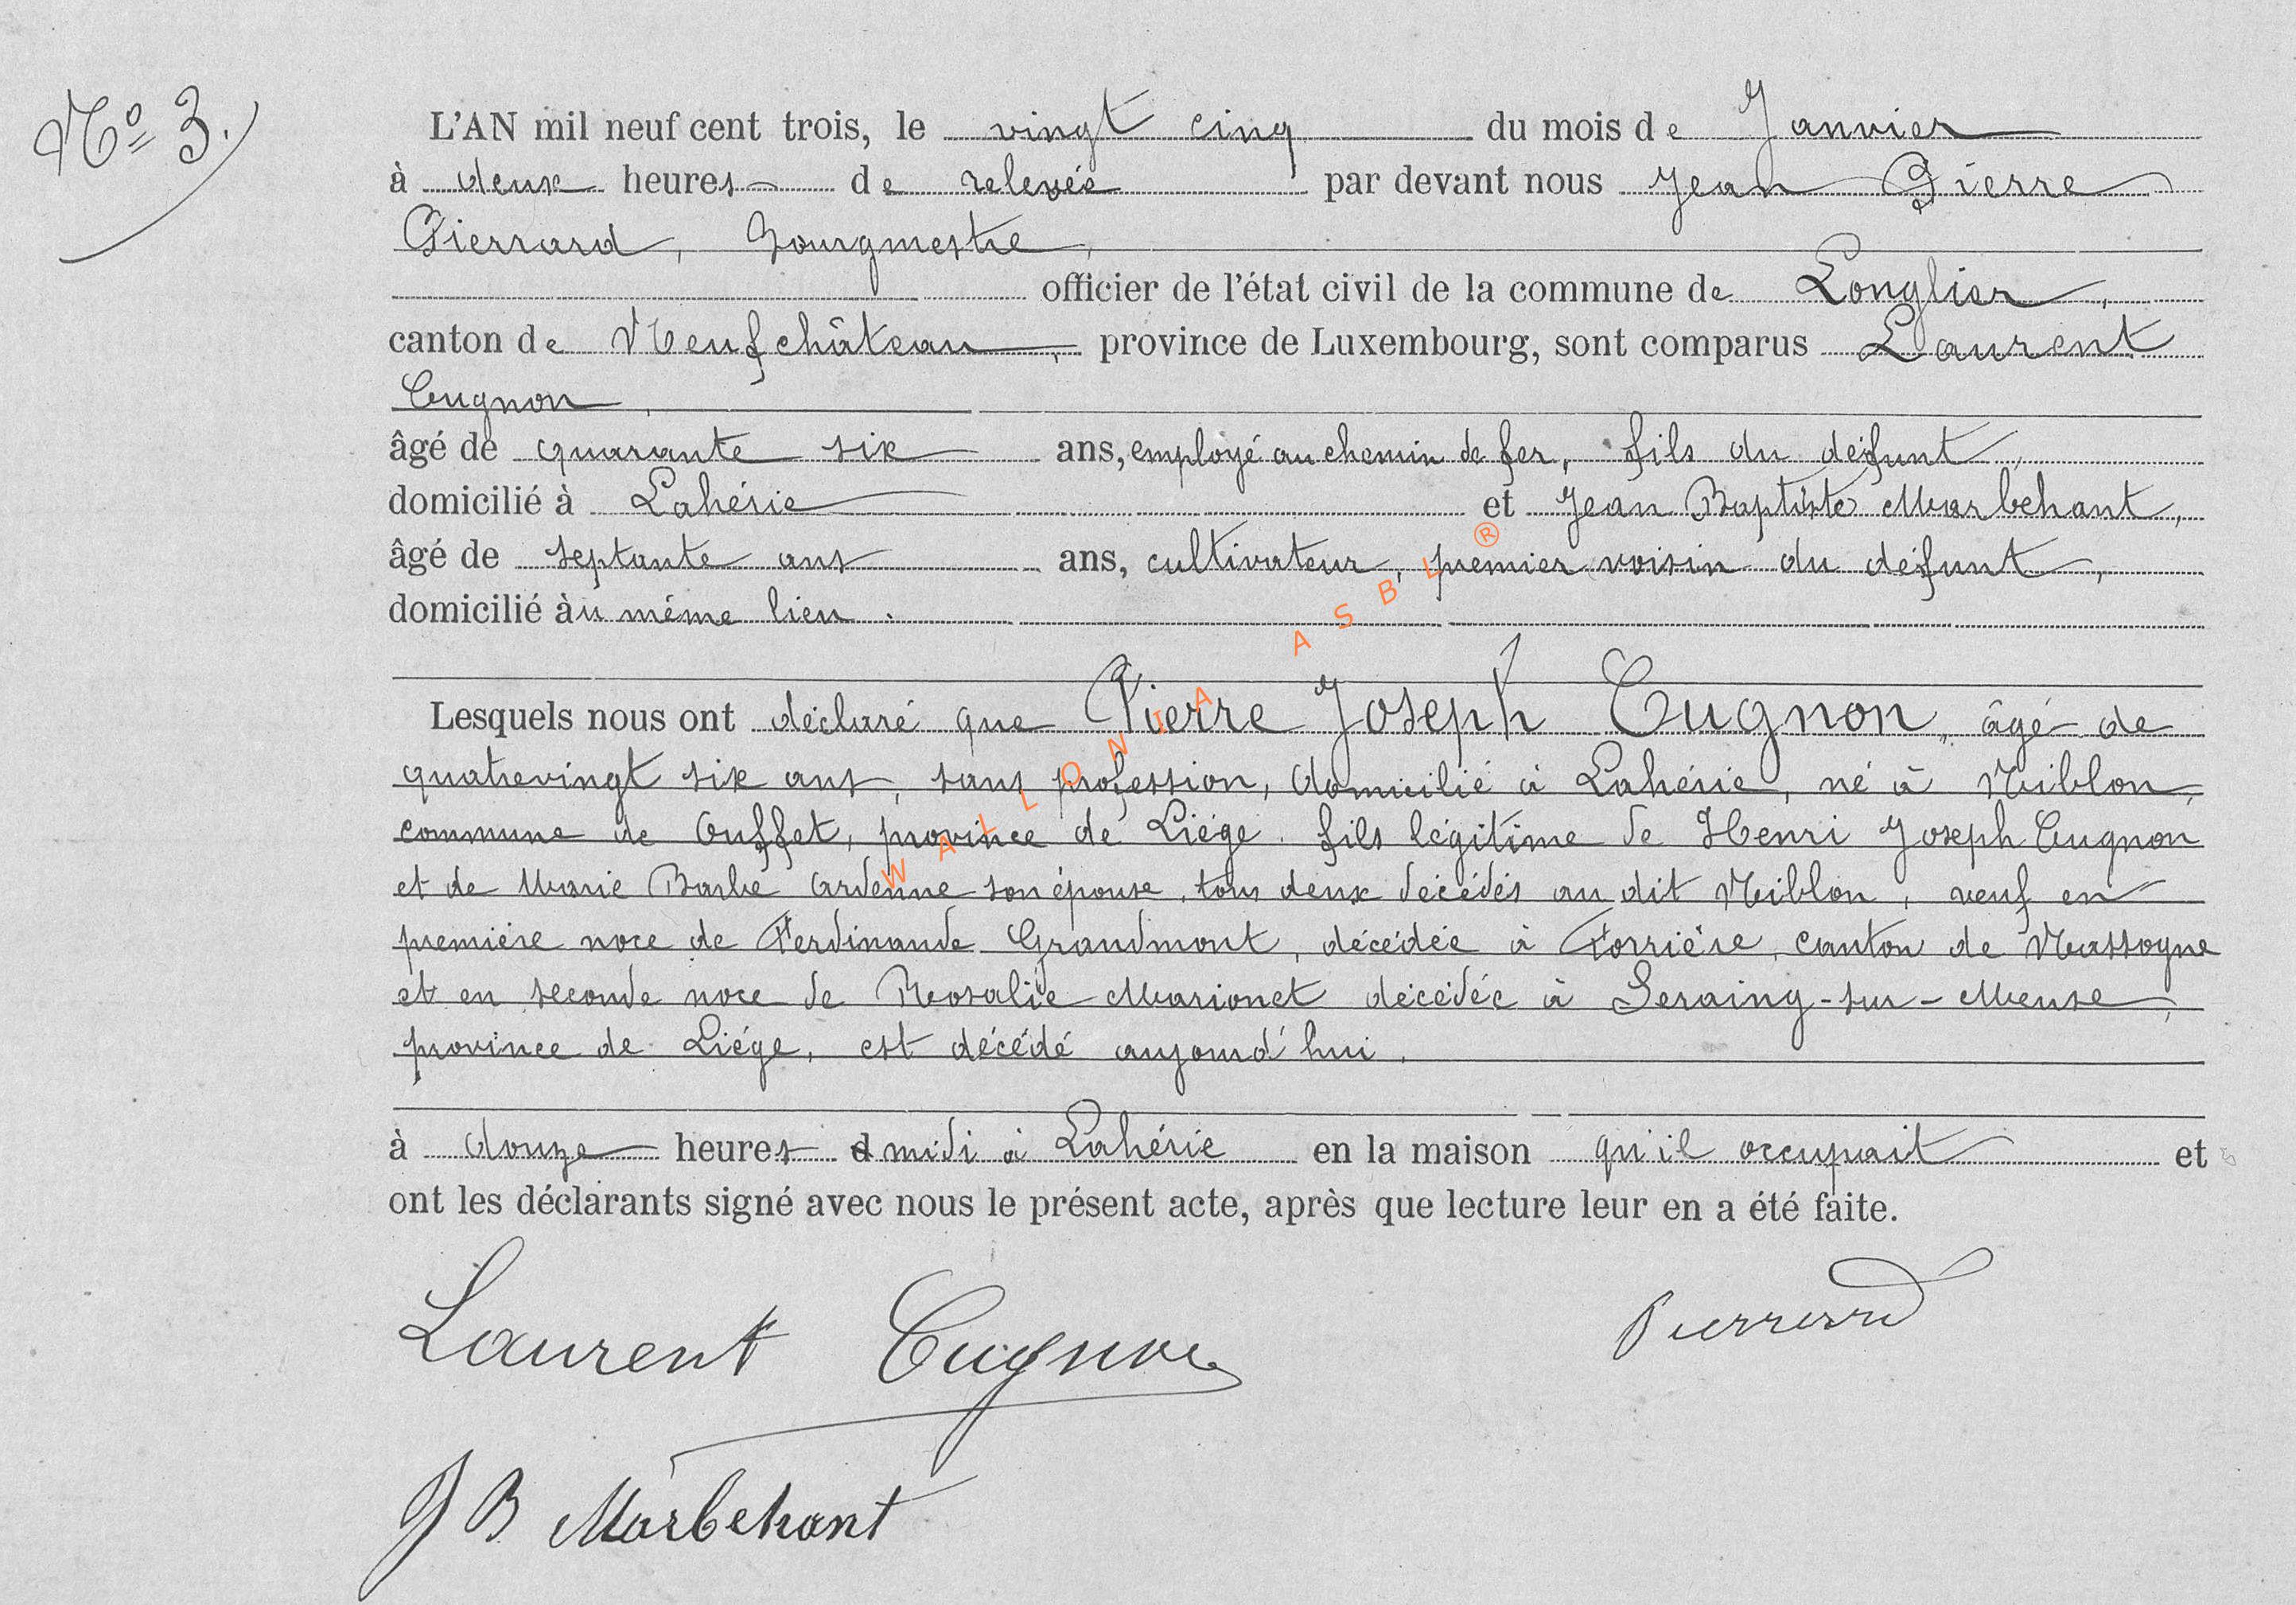 Nº 3.
L'AN mil neuf cent trois, le vingt cinq du mois de Janvier
à deux heures de relevée par devant nous Jean Pierre
Pierrard, Bourgmestre,
officier de l'état civil de la commune de Longlier,
canton de Neufchâteau, province de Luxembourg, sont comparus Laurent
Cugnon,
âgé de quarante six ans, employé au chemin de fer, fils du défunt,
domicilié à Lahérie et Jean Baptiste Marbehant,
âgé de septante ans ans, cultivateur, premier voisin du défunt,
domicilié àu même lieu.
Lesquels nous ont déclaré que Pierre Joseph Cugnon, âgé de
quatrevingt six ans, sans profession, domicilié à Lahérie, né à Niblon,
commune de Ouffet, province de Liége. fils légitime de Henri Joseph Cugnon
et de Marie Barbe Ardenne son épouse, tous deux décédés au dit Niblon, veuf en
première noce de Ferdinande Grandmont, décédée à Forrière, canton de Nassogne
et en seconde noce de Rosalie Marionet décédée à Seraing-sur-Meuse,
province de Liége, est décédé aujourd'hui,
à douze heures d midi à Lahérie en la maison qu'il occupait et
ont les déclarants signé avec nous le présent acte, après que lecture leur en a été faite.
Laurent Cugnon Pierrard
J B Marbehant
WALLONIA ASBL ®